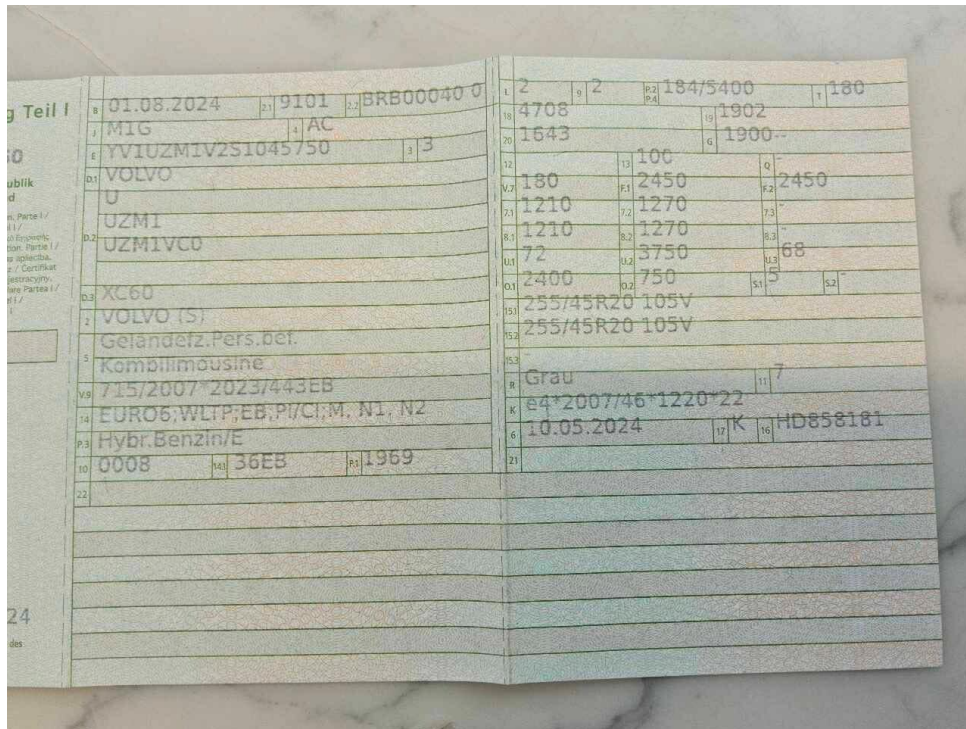 g Teil I
60
ublik
d
n. Parte I /
il I /
tion. Partie I /
us apliecība.
z / Certifikat
jestracyjny.
lare Partea I /
el I /
24
des
B 01.08.2024 2.1 9101 2.2 BRB00040 0
J M1G 4 AC
E YV1UZM1V2S1045750 3 3
D.1 VOLVO
U
D.2 UZM1
UZM1VC0
D.3 XC60
2 VOLVO (S)
5 Geländefz.Pers.bef.
Kombilimousine
V.9 715/2007*2023/443EB
14 EURO6;WLTP;EB;PI/CI;M, N1, N2
P.3 Hybr.Benzin/E
10 0008 14.1 36EB P.1 1969
22
L 2 9 2 P.2 P.4 184/5400 T 180
18 4708 19 1902
20 1643 G 1900--
12 - 13 100 Q -
V.7 180 F.1 2450 F.2 2450
7.1 1210 7.2 1270 7.3 -
8.1 1210 8.2 1270 8.3 -
U.1 72 U.2 3750 U.3 68
O.1 2400 O.2 750 S.1 5 S.2 -
15.1 255/45R20 105V
15.2 255/45R20 105V
15.3 -
R Grau 11 7
K e4*2007/46*1220*22
6 10.05.2024 17 K 16 HD858181
21